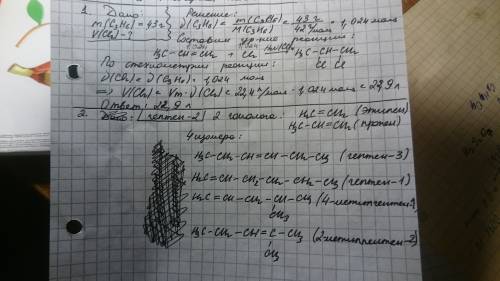 1. Дано: Решение:
m(C3H6) = 43г ν(C3H6) = m(C3H6)/M(C3H6) = 43 г/42 г/моль = 1,024 моль
V(Cl2) - ? Составим ур-ние реакции:
1,024
H3C-CH=CH2 + Cl2 → H3C-CH-CH2
Cl Cl
По стехиометрии реакции:
ν(Cl2) = ν(C3H6) = 1,024 моль
⇒ V(Cl2) = Vm · ν(Cl2) = 22,4 л/моль · 1,024 моль = 22,9 л
Ответ: 22,9 л
2. Дано: гептен-2 2 гомолога: H2C=CH2 (этилен)
H3C-CH=CH2 (пропен)
4 изомера:
H3C-CH2-CH=CH-CH2-CH3 (гептен-3)
H2C=CH-CH2-CH2-CH2-CH3 (гептен-1)
H2C=CH-CH2-CH-CH3 (4-метилпентен-1)
CH3
H3C-CH2-CH=C-CH3 (2-метилпентен-2)
CH3